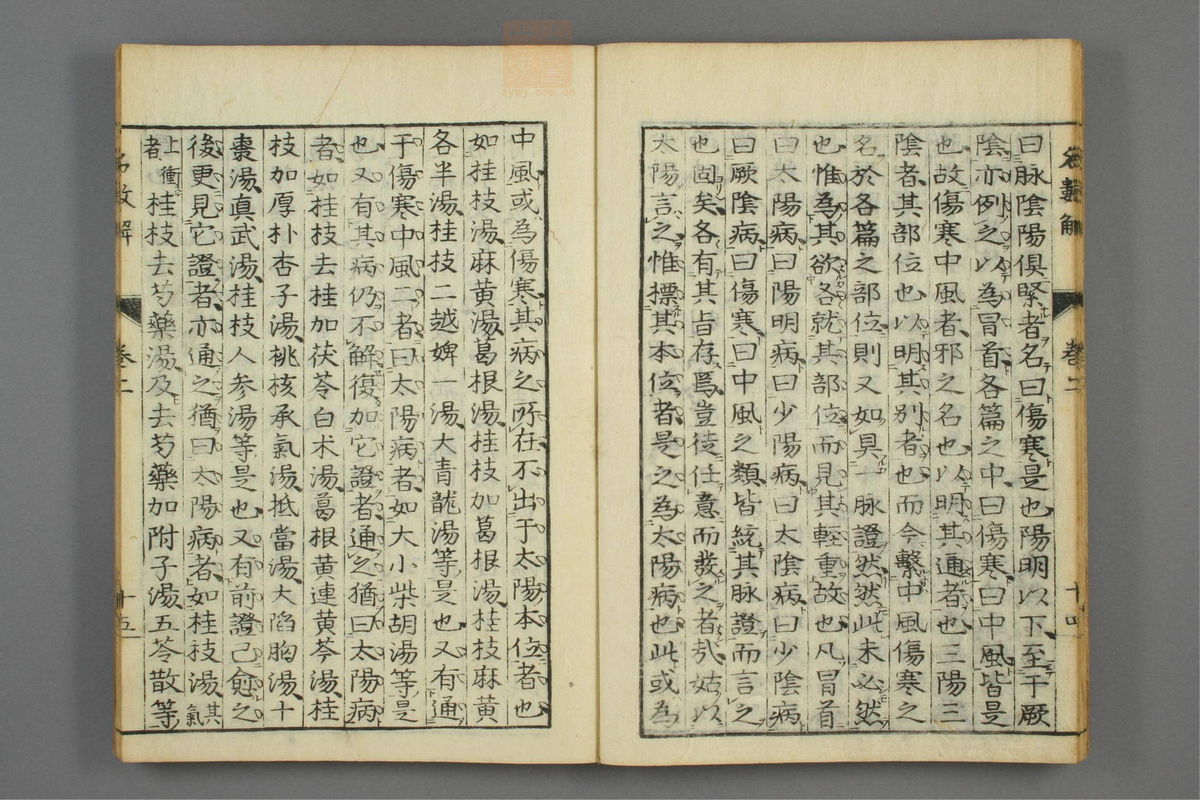 曰脉陰陽俱緊者名曰傷寒是也陽明以下至于厥
陰亦例之以為冒首各篇之中曰傷寒曰中風皆是
也故傷寒中風者邪之名也以明其通者也三陽三
陰者其部位也以明其別者也而今繫中風傷寒之
名於各篇之部位則又如具一脉證然然此未必然
也惟為其欲各就其部位而見其輕重故也凡冒首
曰太陽病曰陽明病曰少陽病曰太陰病曰少陰病
曰厥陰病曰傷寒曰中風之類皆統其脉證而言之
也固矣各有其旨存焉豈徒任意而發之者㢤姑以
太陽言之惟摽其本位者是之為太陽病也此或為
卷二
中風或為傷寒其病之所在不出于太陽本位者也
如桂枝湯麻黄湯葛根湯桂枝加葛根湯桂枝麻黄
各半湯桂枝二越婢一湯大青龍湯等是也又有通
于傷寒中風二者曰太陽病者如大小柴胡湯等是
也又有其病仍不解復加它證者通之猶曰太陽病
者如桂枝去桂加茯苓白术湯葛根黄連黄芩湯桂
枝加厚朴杏子湯桃核承氣湯抵當湯大陷胸湯十
棗湯真武湯桂枝人参湯等是也又有前證已愈之
後更見它證者亦通之猶曰太陽病者如桂枝湯其氣
上衝者桂枝去芍藥湯及去芍藥加附子湯五苓散等
卷二
十五